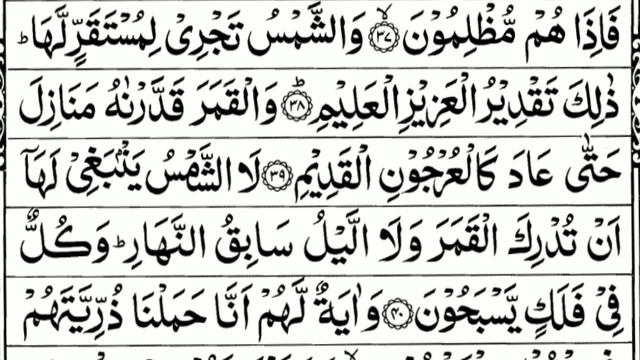 فَاِذَا هُمْ مُّظْلِمُوْنَ ۙ﴿۳۷﴾ وَالشَّمْسُ تَجْرِىْ لِمُسْتَقَرٍّ لَّهَا ؕ
ذٰلِكَ تَقْدِيْرُ الْعَزِيْزِ الْعَلِيْمِ ؕ﴿۳۸﴾ وَالْقَمَرَ قَدَّرْنٰهُ مَنَازِلَ
حَتّٰى عَادَ كَالْعُرْجُوْنِ الْقَدِيْمِ ﴿۳۹﴾ لَا الشَّمْسُ يَنْۢبَغِىْ لَهَاۤ
اَنْ تُدْرِكَ الْقَمَرَ وَلَا الَّيْلُ سَابِقُ النَّهَارِ ؕ وَكُلٌّ
فِىْ فَلَكٍ يَّسْبَحُوْنَ ﴿۴۰﴾ وَاٰيَةٌ لَّهُمْ اَنَّا حَمَلْنَا ذُرِّيَّتَهُمْ